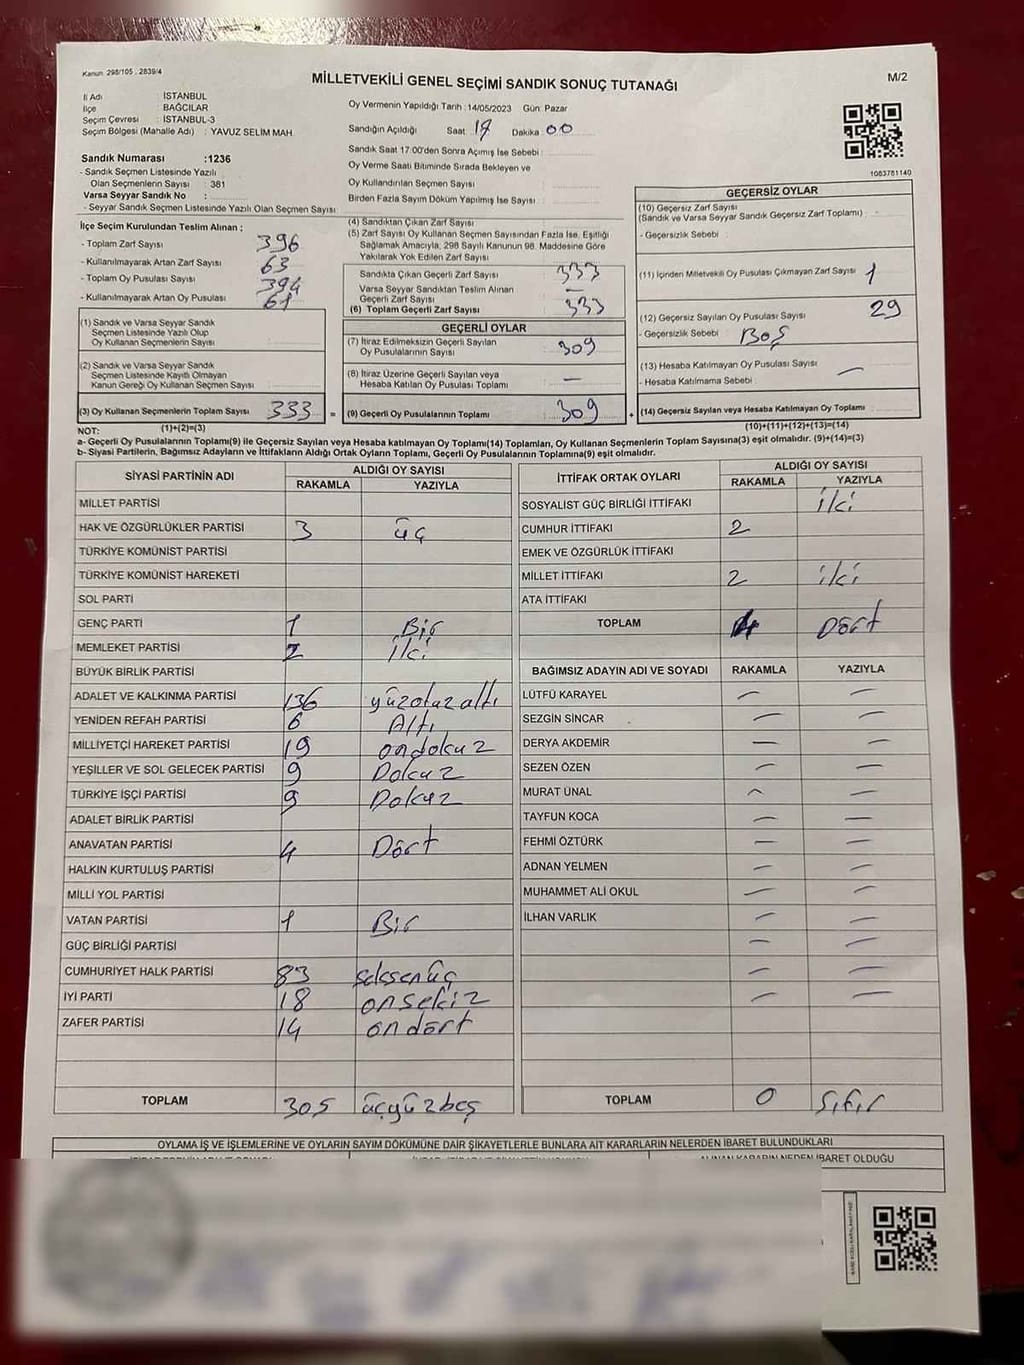 Kanun 298/105 , 2839/4
MİLLETVEKİLİ GENEL SEÇİMİ SANDIK SONUÇ TUTANAĞI
M/2
İl Adı : İSTANBUL
İlçe : BAĞCILAR
Seçim Çevresi : İSTANBUL-3
Seçim Bölgesi (Mahalle Adı) : YAVUZ SELİM MAH
Oy Vermenin Yapıldığı Tarih :14/05/2023 Gün: Pazar
Sandığın Açıldığı Saat 17 Dakika 00
Sandık Saat 17:00'den Sonra Açılmış İse Sebebi :
Oy Verme Saati Bitiminde Sırada Bekleyen ve
Oy Kullandırılan Seçmen Sayısı :
Birden Fazla Sayım Döküm Yapılmış İse Sayısı :
1083781140
Sandık Numarası :1236
- Sandık Seçmen Listesinde Yazılı
Olan Seçmenlerin Sayısı : 381
Varsa Seyyar Sandık No :
- Seyyar Sandık Seçmen Listesinde Yazılı Olan Seçmen Sayısı
İlçe Seçim Kurulundan Teslim Alınan :
- Toplam Zarf Sayısı 396
- Kullanılmayarak Artan Zarf Sayısı 63
- Toplam Oy Pusulası Sayısı 394
- Kullanılmayarak Artan Oy Pusulası 61
(1) Sandık ve Varsa Seyyar Sandık
Seçmen Listesinde Yazılı Olup
Oy Kullanan Seçmenlerin Sayısı :
(2) Sandık ve Varsa Seyyar Sandık
Seçmen Listesinde Kayıtlı Olmayan
Kanun Gereği Oy Kullanan Seçmen Sayısı :
(3) Oy Kullanan Seçmenlerin Toplam Sayısı 333 =
(1)+(2)=(3)
(4) Sandıktan Çıkan Zarf Sayısı
(5) Zarf Sayısı Oy Kullanan Seçmen Sayısından Fazla İse, Eşitliği
Sağlamak Amacıyla, 298 Sayılı Kanunun 98. Maddesine Göre
Yakılarak Yok Edilen Zarf Sayısı :
Sandıkta Çıkan Geçerli Zarf Sayısı 333
Varsa Seyyar Sandıktan Teslim Alınan
Geçerli Zarf Sayısı —
(6) Toplam Geçerli Zarf Sayısı 333
GEÇERLİ OYLAR
(7) İtiraz Edilmeksizin Geçerli Sayılan
Oy Pusulalarının Sayısı 309
(8) İtiraz Üzerine Geçerli Sayılan veya
Hesaba Katılan Oy Pusulası Toplamı —
(9) Geçerli Oy Pusulalarının Toplamı 309 +
GEÇERSİZ OYLAR
(10) Geçersiz Zarf Sayısı
(Sandık ve Varsa Seyyar Sandık Geçersiz Zarf Toplamı) :
- Geçersizlik Sebebi :
(11) İçinden Milletvekili Oy Pusulası Çıkmayan Zarf Sayısı 1
(12) Geçersiz Sayılan Oy Pusulası Sayısı 29
- Geçersizlik Sebebi : BOŞ
(13) Hesaba Katılmayan Oy Pusulası Sayısı : —
- Hesaba Katılmama Sebebi :
(14) Geçersiz Sayılan veya Hesaba Katılmayan Oy Toplamı
(10)+(11)+(12)+(13)=(14)
NOT:
a- Geçerli Oy Pusulalarının Toplamı(9) ile Geçersiz Sayılan veya Hesaba katılmayan Oy Toplamı(14) Toplamları, Oy Kullanan Seçmenlerin Toplam Sayısına(3) eşit olmalıdır. (9)+(14)=(3)
b- Siyasi Partilerin, Bağımsız Adayların ve İttifakların Aldığı Ortak Oyların Toplamı, Geçerli Oy Pusulalarının Toplamına(9) eşit olmalıdır.
SİYASİ PARTİNİN ADI ALDIĞI OY SAYISI
RAKAMLA YAZIYLA
MİLLET PARTİSİ
HAK VE ÖZGÜRLÜKLER PARTİSİ 3 üç
TÜRKİYE KOMÜNİST PARTİSİ
TÜRKİYE KOMÜNİST HAREKETİ
SOL PARTİ
GENÇ PARTİ 1 Bir
MEMLEKET PARTİSİ 2 iki
BÜYÜK BİRLİK PARTİSİ
ADALET VE KALKINMA PARTİSİ 136 yüzotuzaltı
YENİDEN REFAH PARTİSİ 6 Altı
MİLLİYETÇİ HAREKET PARTİSİ 19 ondokuz
YEŞİLLER VE SOL GELECEK PARTİSİ 9 Dokuz
TÜRKİYE İŞÇİ PARTİSİ 9 Dokuz
ADALET BİRLİK PARTİSİ
ANAVATAN PARTİSİ 4 Dört
HALKIN KURTULUŞ PARTİSİ
MİLLİ YOL PARTİSİ
VATAN PARTİSİ 1 Bir
GÜÇ BİRLİĞİ PARTİSİ
CUMHURİYET HALK PARTİSİ 83 seksenüç
İYİ PARTİ 18 onsekiz
ZAFER PARTİSİ 14 ondört
TOPLAM 305 üçyüzbeş
İTTİFAK ORTAK OYLARI ALDIĞI OY SAYISI
RAKAMLA YAZIYLA
SOSYALİST GÜÇ BİRLİĞİ İTTİFAKI iki
CUMHUR İTTİFAKI 2
EMEK VE ÖZGÜRLÜK İTTİFAKI
MİLLET İTTİFAKI 2 iki
ATA İTTİFAKI
TOPLAM 4 Dört
BAĞIMSIZ ADAYIN ADI VE SOYADI RAKAMLA YAZIYLA
LÜTFÜ KARAYEL — —
SEZGİN SİNCAR — —
DERYA AKDEMİR — —
SEZEN ÖZEN — —
MURAT ÜNAL — —
TAYFUN KOCA — —
FEHMİ ÖZTÜRK — —
ADNAN YELMEN — —
MUHAMMET ALİ OKUL — —
İLHAN VARLIK — —
— —
— —
— —
TOPLAM 0 Sıfır
OYLAMA İŞ VE İŞLEMLERİNE VE OYLARIN SAYIM DÖKÜMÜNE DAİR ŞİKAYETLERLE BUNLARA AİT KARARLARIN NELERDEN İBARET BULUNDUKLARI
ALINAN KARARIN NEDEN İBARET OLDUĞU